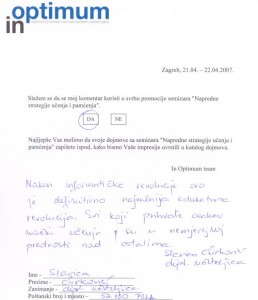 in optimum
Zagreb, 21.04. – 22.04.2007.
Slažem se da se moj komentar koristi u svrhu promocije seminara "Napredne
strategije učenja i pamćenja".
DA NE
Najljepše Vas molimo da svoje dojmove sa seminara "Napredne strategije učenja i
pamćenja" zapišete ispod, kako bismo Vaše impresije uvrstili u katalog dojmova.
In Optimum team
Nakon informatičke revolucije ovo
je definitivno najvažnija edukativna
revolucija. Svi koji prihvate ovakav
način učenja su u nemjerljivoj
prednosti nad ostalima.
Slavica Ćurković
dipl.
Ime - Slavica
Prezime - Ćurković
Zanimanje - dipl.
Poštanski broj i mjesto - 52.100 Pula